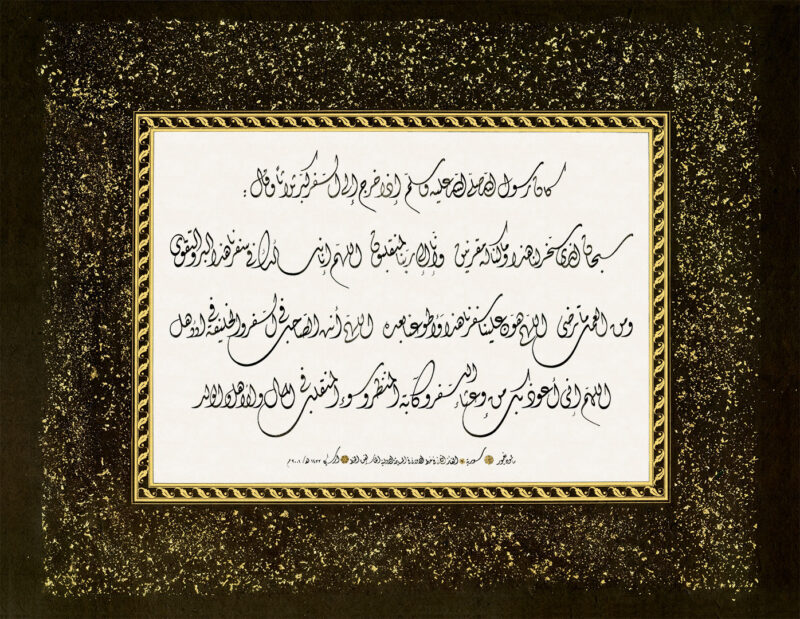 كان رسول الله صلى الله عليه وسلم إذا خرج إلى السفر كبر ثلاثا وقال :
سبحان الذي سخر لنا هذا وما كنا له مقرنين وإنا إلى ربنا لمنقلبون اللهم إني أسألك في سفرنا هذا البر والتقوى
ومن العمل ما ترضى اللهم هون علينا سفرنا هذا واطو عنا بعده اللهم أنت الصاحب في السفر والخليفة في الأهل
اللهم إني أعوذ بك من وعثاء السفر وكآبة المنظر وسوء المنقلب في المال والأهل والولد
سورية